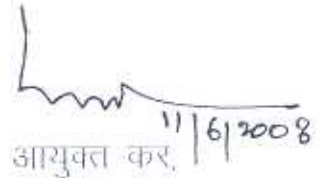 11/6/2008
आयुक्त कर,